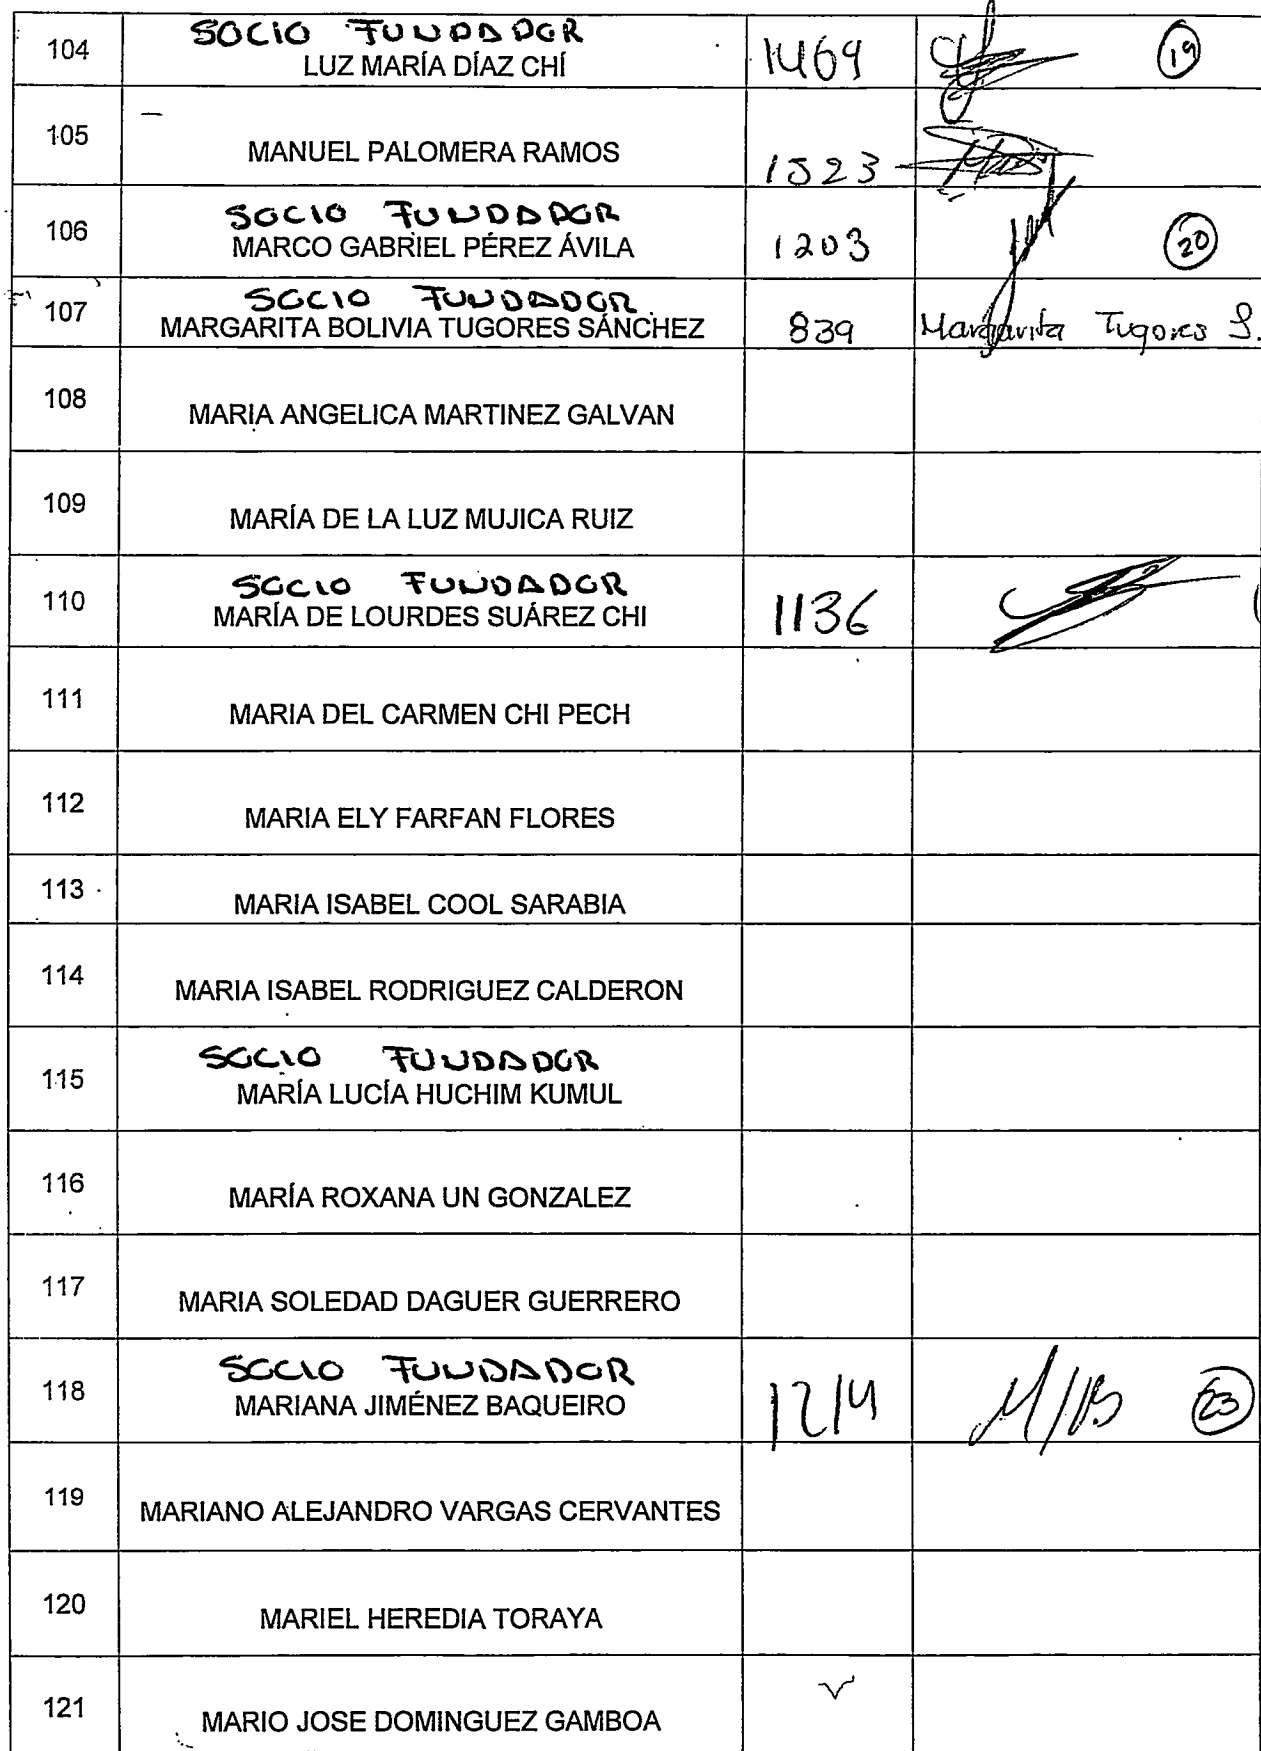 104 SOCIO FUNDADOR
LUZ MARÍA DÍAZ CHÍ 1469 19
105 MANUEL PALOMERA RAMOS 1523
106 SOCIO FUNDADOR
MARCO GABRIEL PÉREZ ÁVILA 1203 20
107 SOCIO FUNDADOR
MARGARITA BOLIVIA TUGORES SÁNCHEZ 839 Margarita Tugores S.
108 MARIA ANGELICA MARTINEZ GALVAN
109 MARÍA DE LA LUZ MUJICA RUIZ
110 SOCIO FUNDADOR
MARÍA DE LOURDES SUÁREZ CHI 1136
111 MARIA DEL CARMEN CHI PECH
112 MARIA ELY FARFAN FLORES
113 MARIA ISABEL COOL SARABIA
114 MARIA ISABEL RODRIGUEZ CALDERON
115 SOCIO FUNDADOR
MARÍA LUCÍA HUCHIM KUMUL
116 MARÍA ROXANA UN GONZALEZ
117 MARIA SOLEDAD DAGUER GUERRERO
118 SOCIO FUNDADOR
MARIANA JIMÉNEZ BAQUEIRO 1214 23
119 MARIANO ALEJANDRO VARGAS CERVANTES
120 MARIEL HEREDIA TORAYA
121 MARIO JOSE DOMINGUEZ GAMBOA